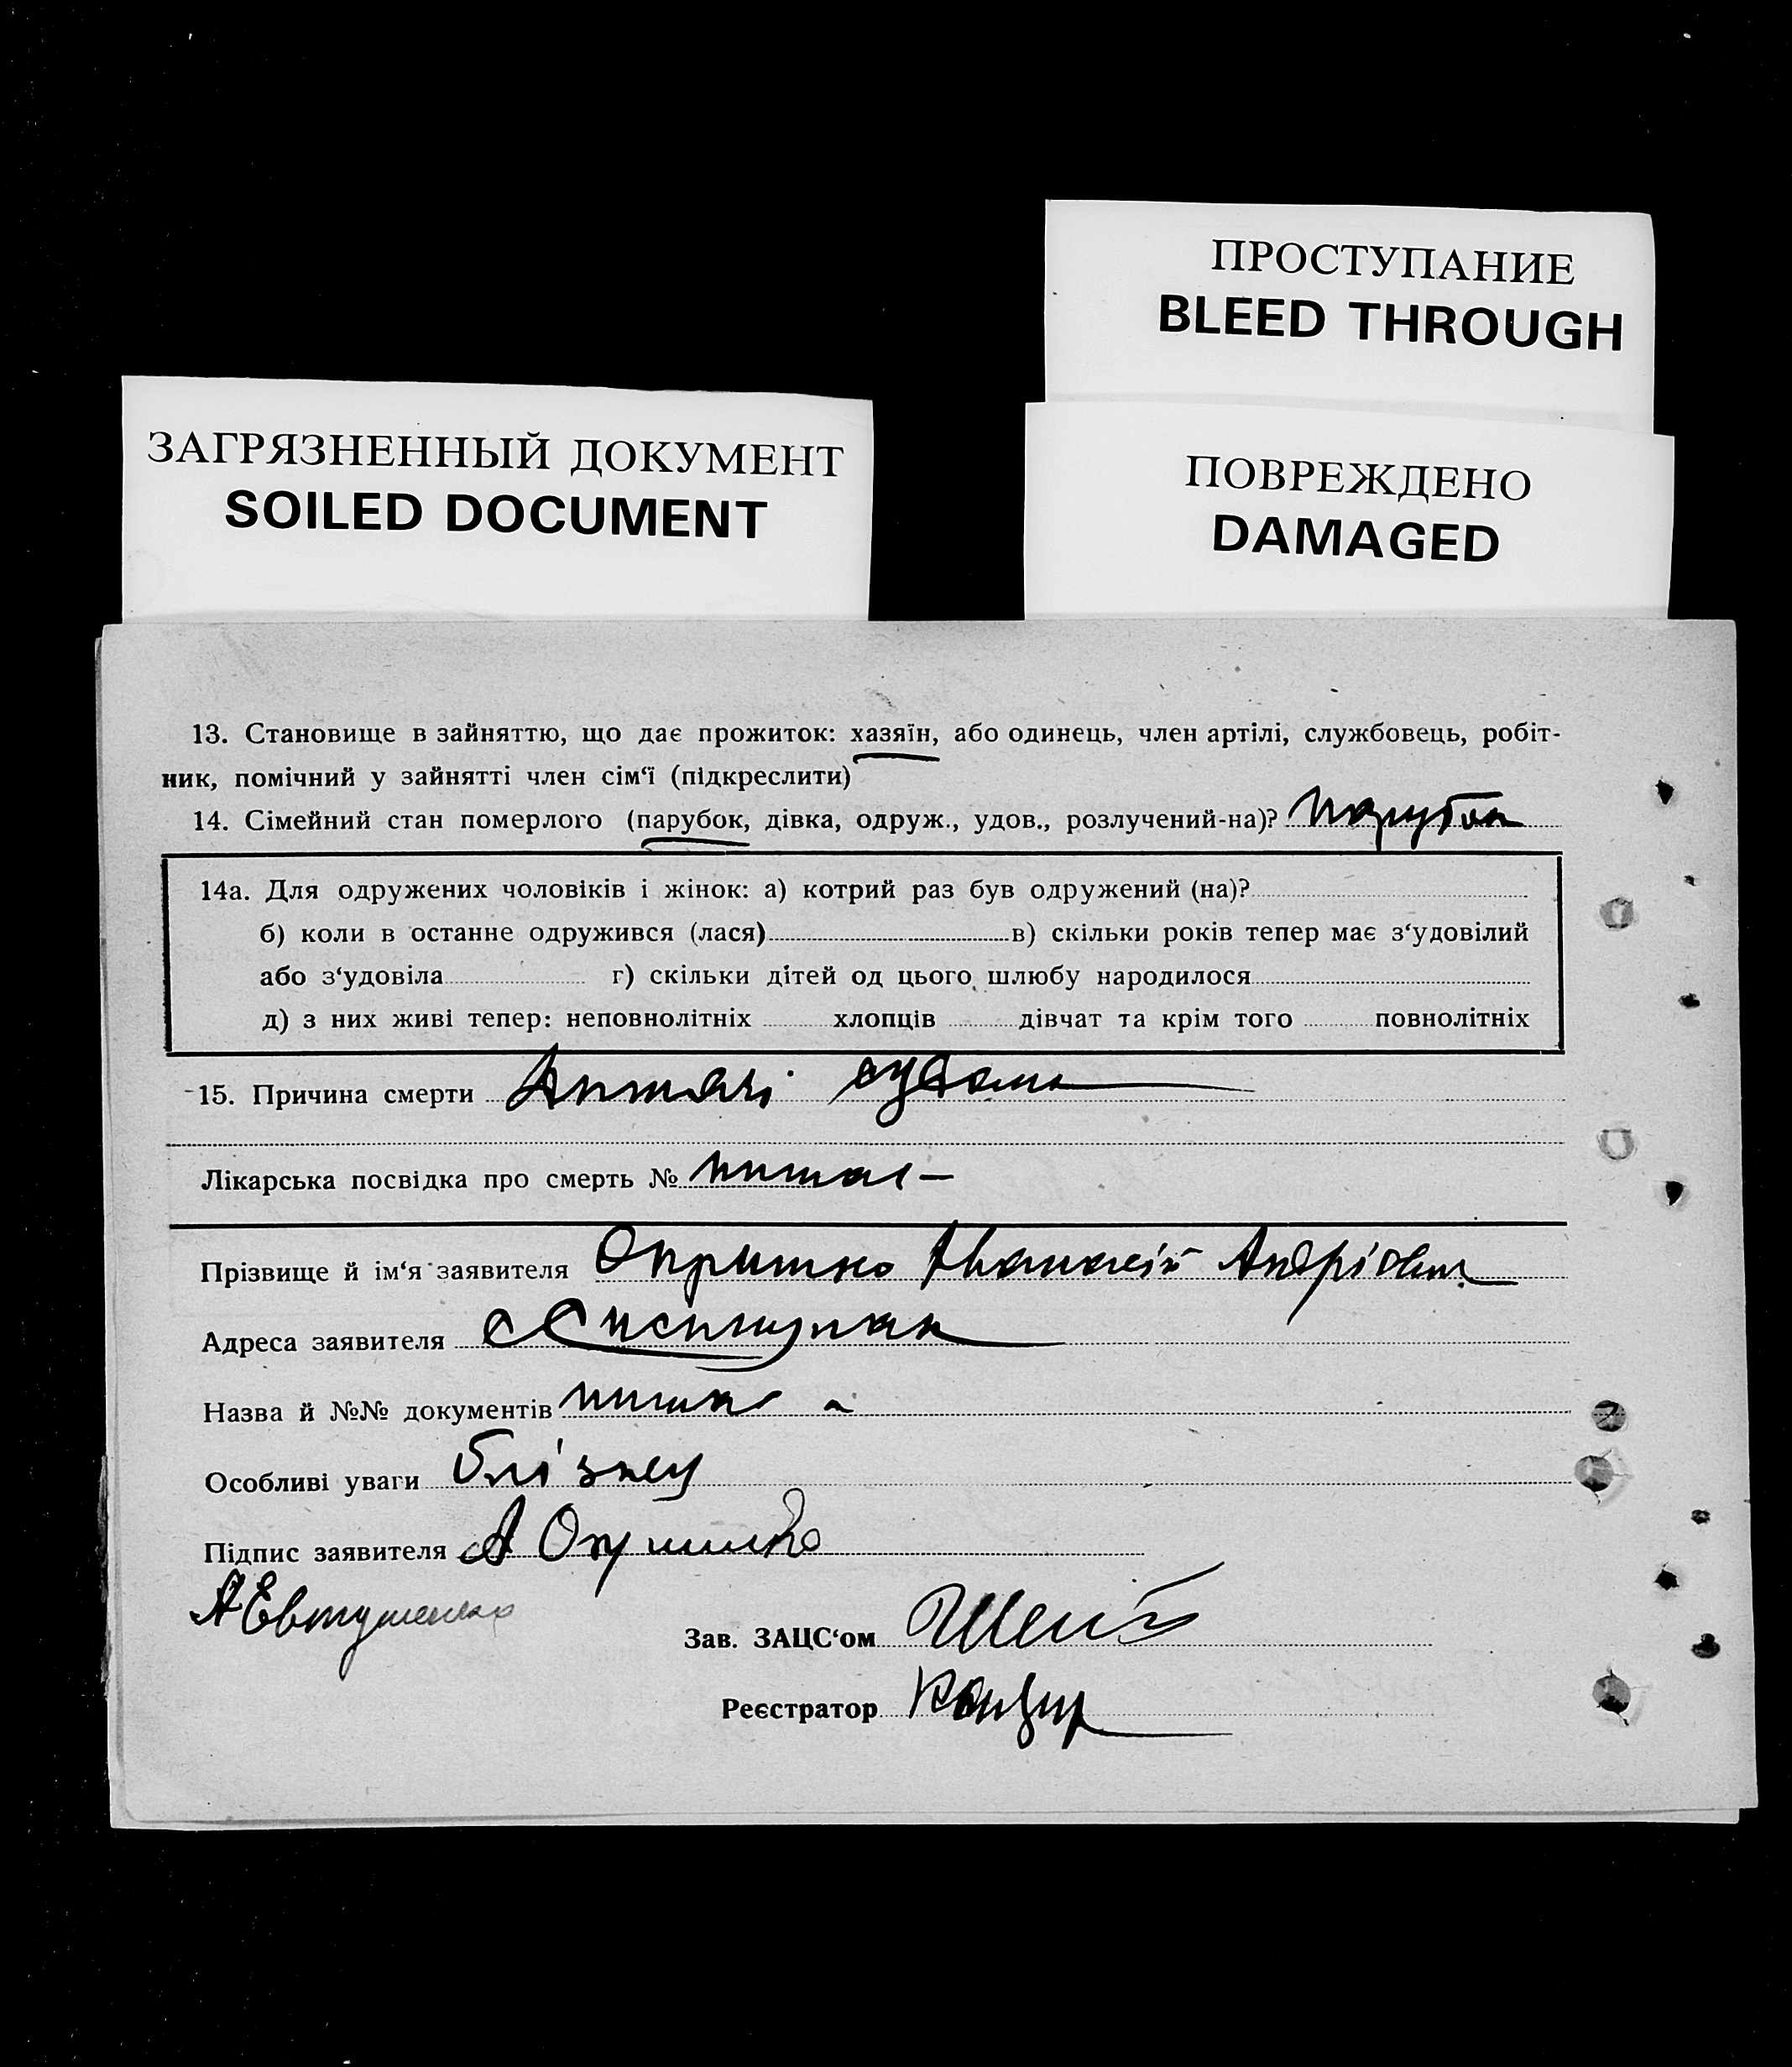 ПРОСТУПАНИЕ
BLEED THROUGH
ЗАГРЯЗНЕННЫЙ ДОКУМЕНТ
SOILED DOCUMENT
ПОВРЕЖДЕНО
DAMAGED
13. Становище в зайняттю, що дає прожиток: хазяїн, або одинець, член артілі, службовець, робіт-
ник, помічний у зайнятті член сім‘ї (підкреслити)
14. Сімейний стан померлого (парубок, дівка, одруж., удов., розлучений-на)? парубок
14а. Для одружених чоловіків і жінок: а) котрий раз був одружений (на)?
б) коли в останне одружився (лася) в) скільки років тепер має з‘удовілий
або з‘удовіла г) скільки дітей од цього шлюбу народилося
д) з них живі тепер: неповнолітніх хлопців дівчат та крім того повнолітніх
15. Причина смерти
Лікарська посвідка про смерть №
Прізвище й ім‘я заявителя Опришко Афанасій Андрієвич
Адреса заявителя
Назва й №№ документів
Особливі уваги
Підпис заявителя А Опришко
А Евтушенко
Зав. ЗАЦС‘ом
Реєстратор